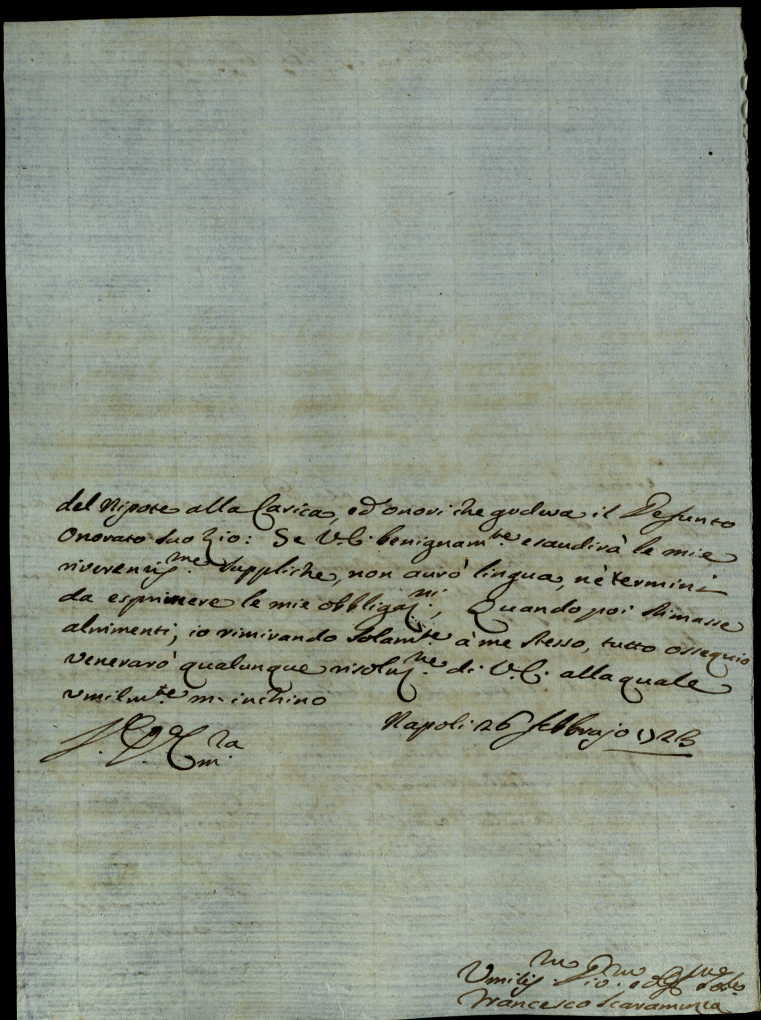 del Nipote alla Carica, ed'onori che godeva il Defunto
Onorato suo Zio: Se V.E. benignam.te esaudirà le mie
riverentiss.me suppliche, non aurò lingua, nè termini
da esprimere le mie obbligaz.ni, Quando poi stimasse
altrimenti, io rimirando solam.te à me stesso, tutto ossequio
venerarò qualunque risoluz.ne di V.E. alla quale
umilm.te m'inchino
Napoli 26 febbrajo
Umiliss.mo
Francesco Scaramuzza